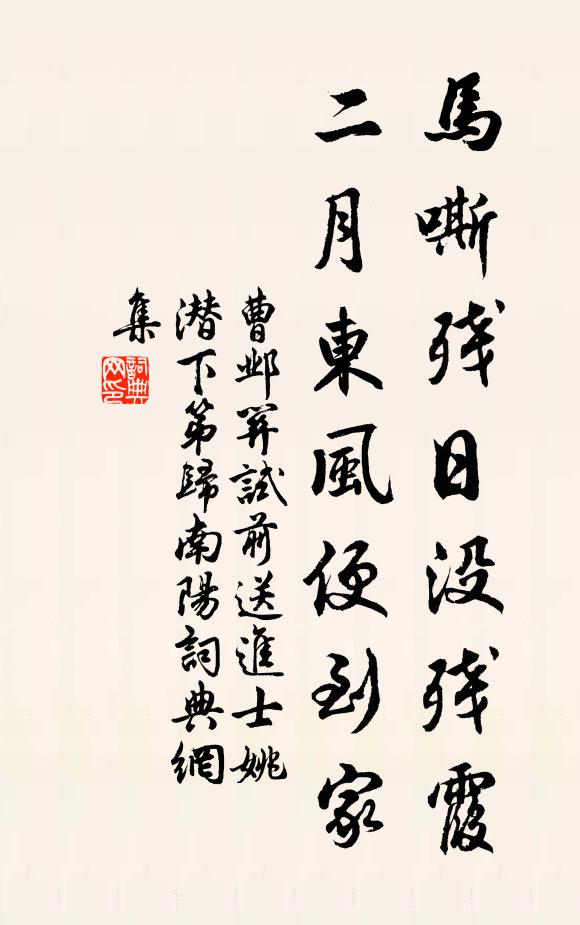 馬嘶殘日没殘霞
二月東風便到家
曹邺関試前送進士姚
潜下第歸南陽詞典網
集
詞典
网印